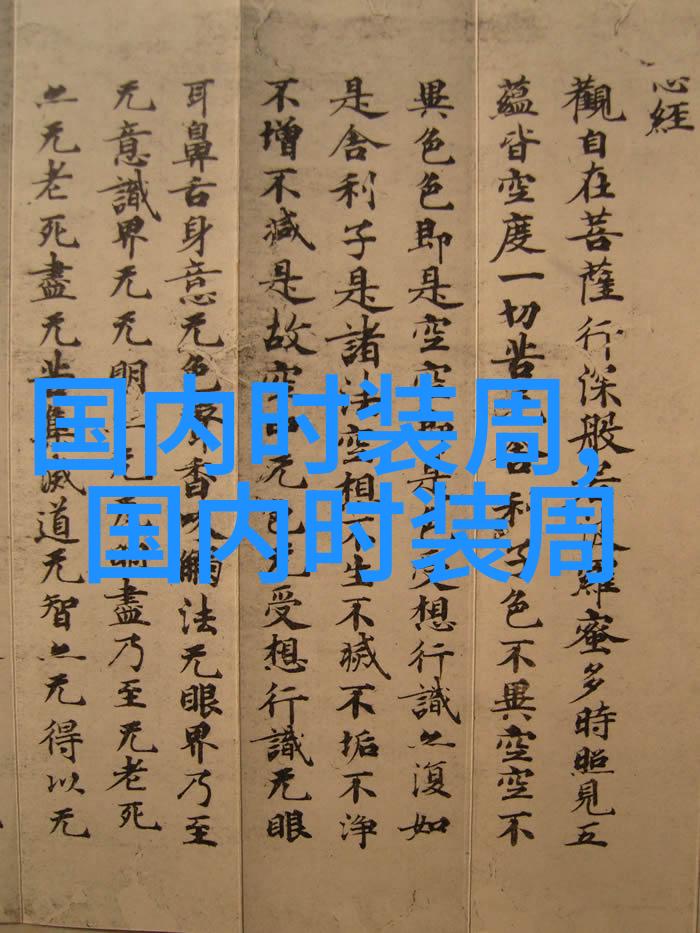 心經
觀自在菩薩行深般羅蜜多時照見五
蘊皆空度一切苦舍利子色不異空空不
異色色即是空空是受想行識亦復如
是舍利子是諸法空相不生不滅不垢不淨
不增不減是故空无色受想行識无眼
耳鼻舌身意无色香觸法无眼界乃至
无意識界无无明无盡乃至无老死
亦无老死盡无滅道无智亦无得以无
国内时装周,
国内时装周